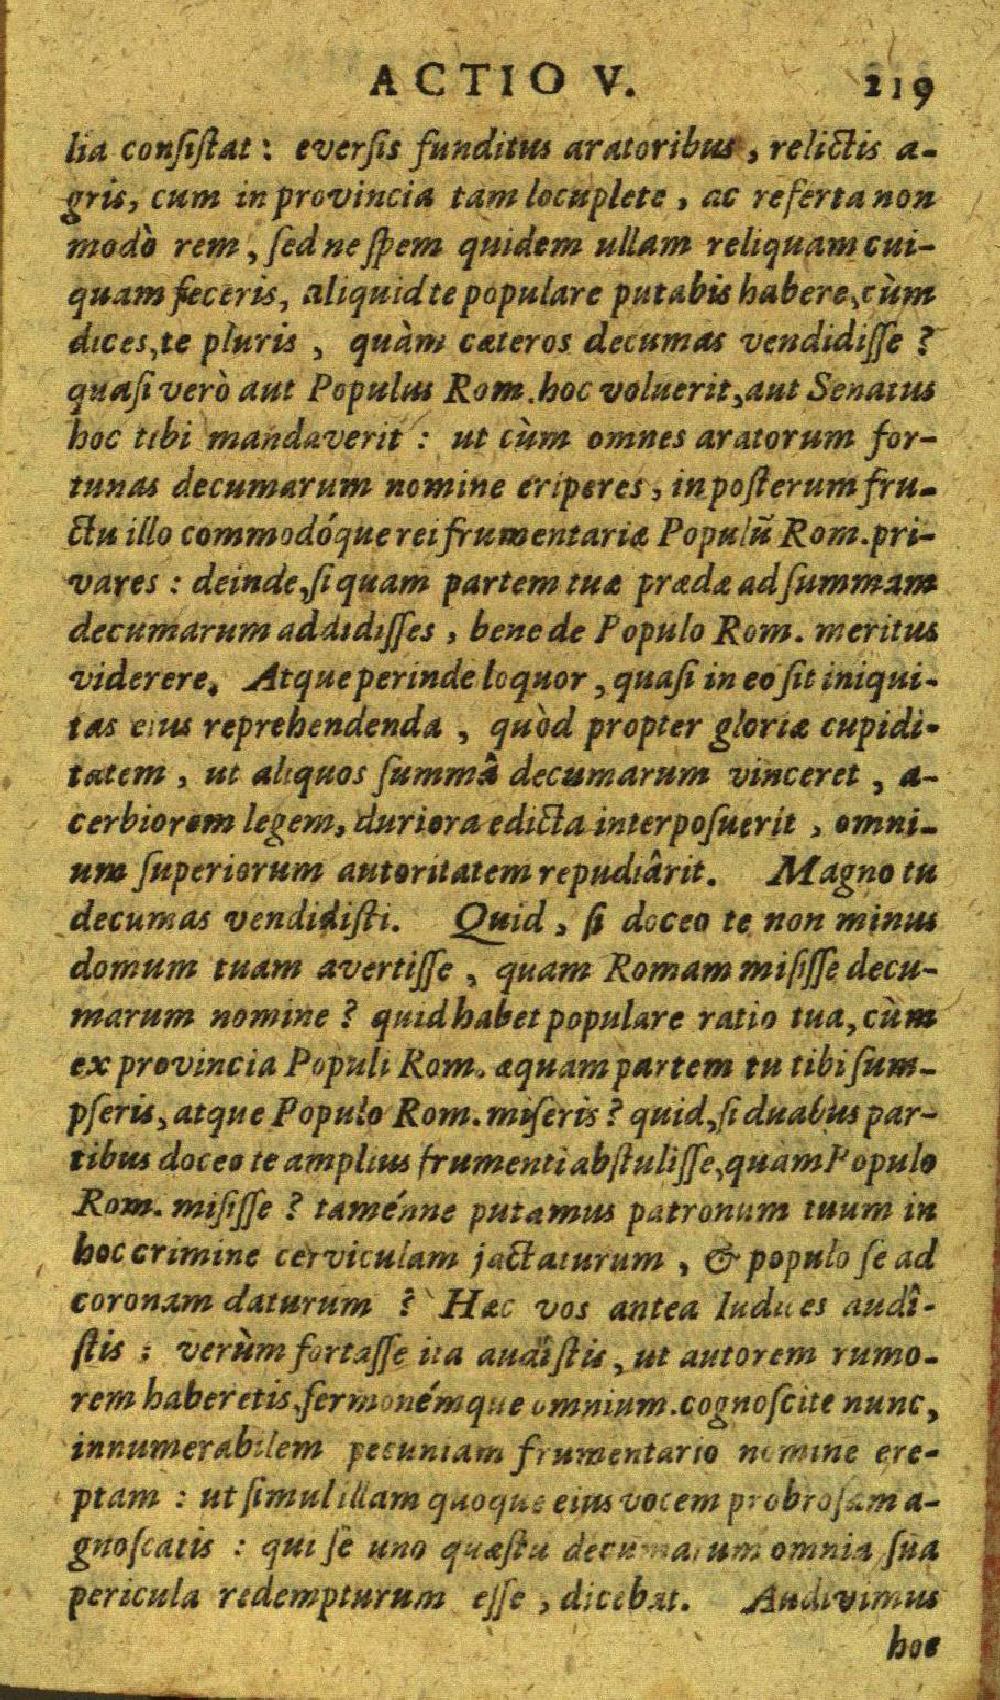 ACTIO V. 219
lia consistat: eversis funditus aratoribus, relictis a-
gris, cum in provincia tam locuplete, ac referta non
modò rem, sed ne spem quidem ullam reliquam cui-
quam feceris, aliquid te populare putabis habere, cùm
dices, te pluris, quàm cæteros decumas vendidisse?
quasi verò aut Populus Rom. hoc voluerit, aut Senatus
hoc tibi mandaverit: ut cùm omnes aratorum for-
tunas decumarum nomine eriperes, in posterum fru-
ctu illo commodóque rei frumentariæ Populũ Rom. pri-
vares: deinde, si quam partem tuæ prædæ ad summam
decumarum addidisses, bene de Populo Rom. meritus
viderere. Atque perinde loquor, quasi in eo sit iniqui-
tas eius reprehendenda, quòd propter gloriæ cupidi-
tatem, ut aliquos summâ decumarum vinceret, a-
cerbiorem legem, duriora edicta interposuerit, omni-
um superiorum autoritatem repudiârit. Magno tu
decumas vendidisti. Quid, si doceo te non minus
domum tuam avertisse, quam Romam misisse decu-
marum nomine? quid habet populare ratio tua, cùm
ex provincia Populi Rom. æquam partem tu tibi sum-
pseris, atque Populo Rom. miseris? quid, si duabus par-
tibus doceo te amplius frumenti abstulisse, quàm Populo
Rom. misisse? taménne putamus patronum tuum in
hoc crimine cerviculam jactaturum, & populo se ad
coronam daturum? Hæc vos antea Iudices audî-
stis: verùm fortasse ita audîstis, ut autorem rumo-
rem haberetis, sermonémque omnium. cognoscite nunc,
innumerabilem pecuniam frumentario nomine ere-
ptam: ut simul illam quoque eius vocem probrosam a-
gnoscatis: qui se uno quæstu decumarum omnia sua
pericula redempturum esse, dicebat. Audivimus
hoc